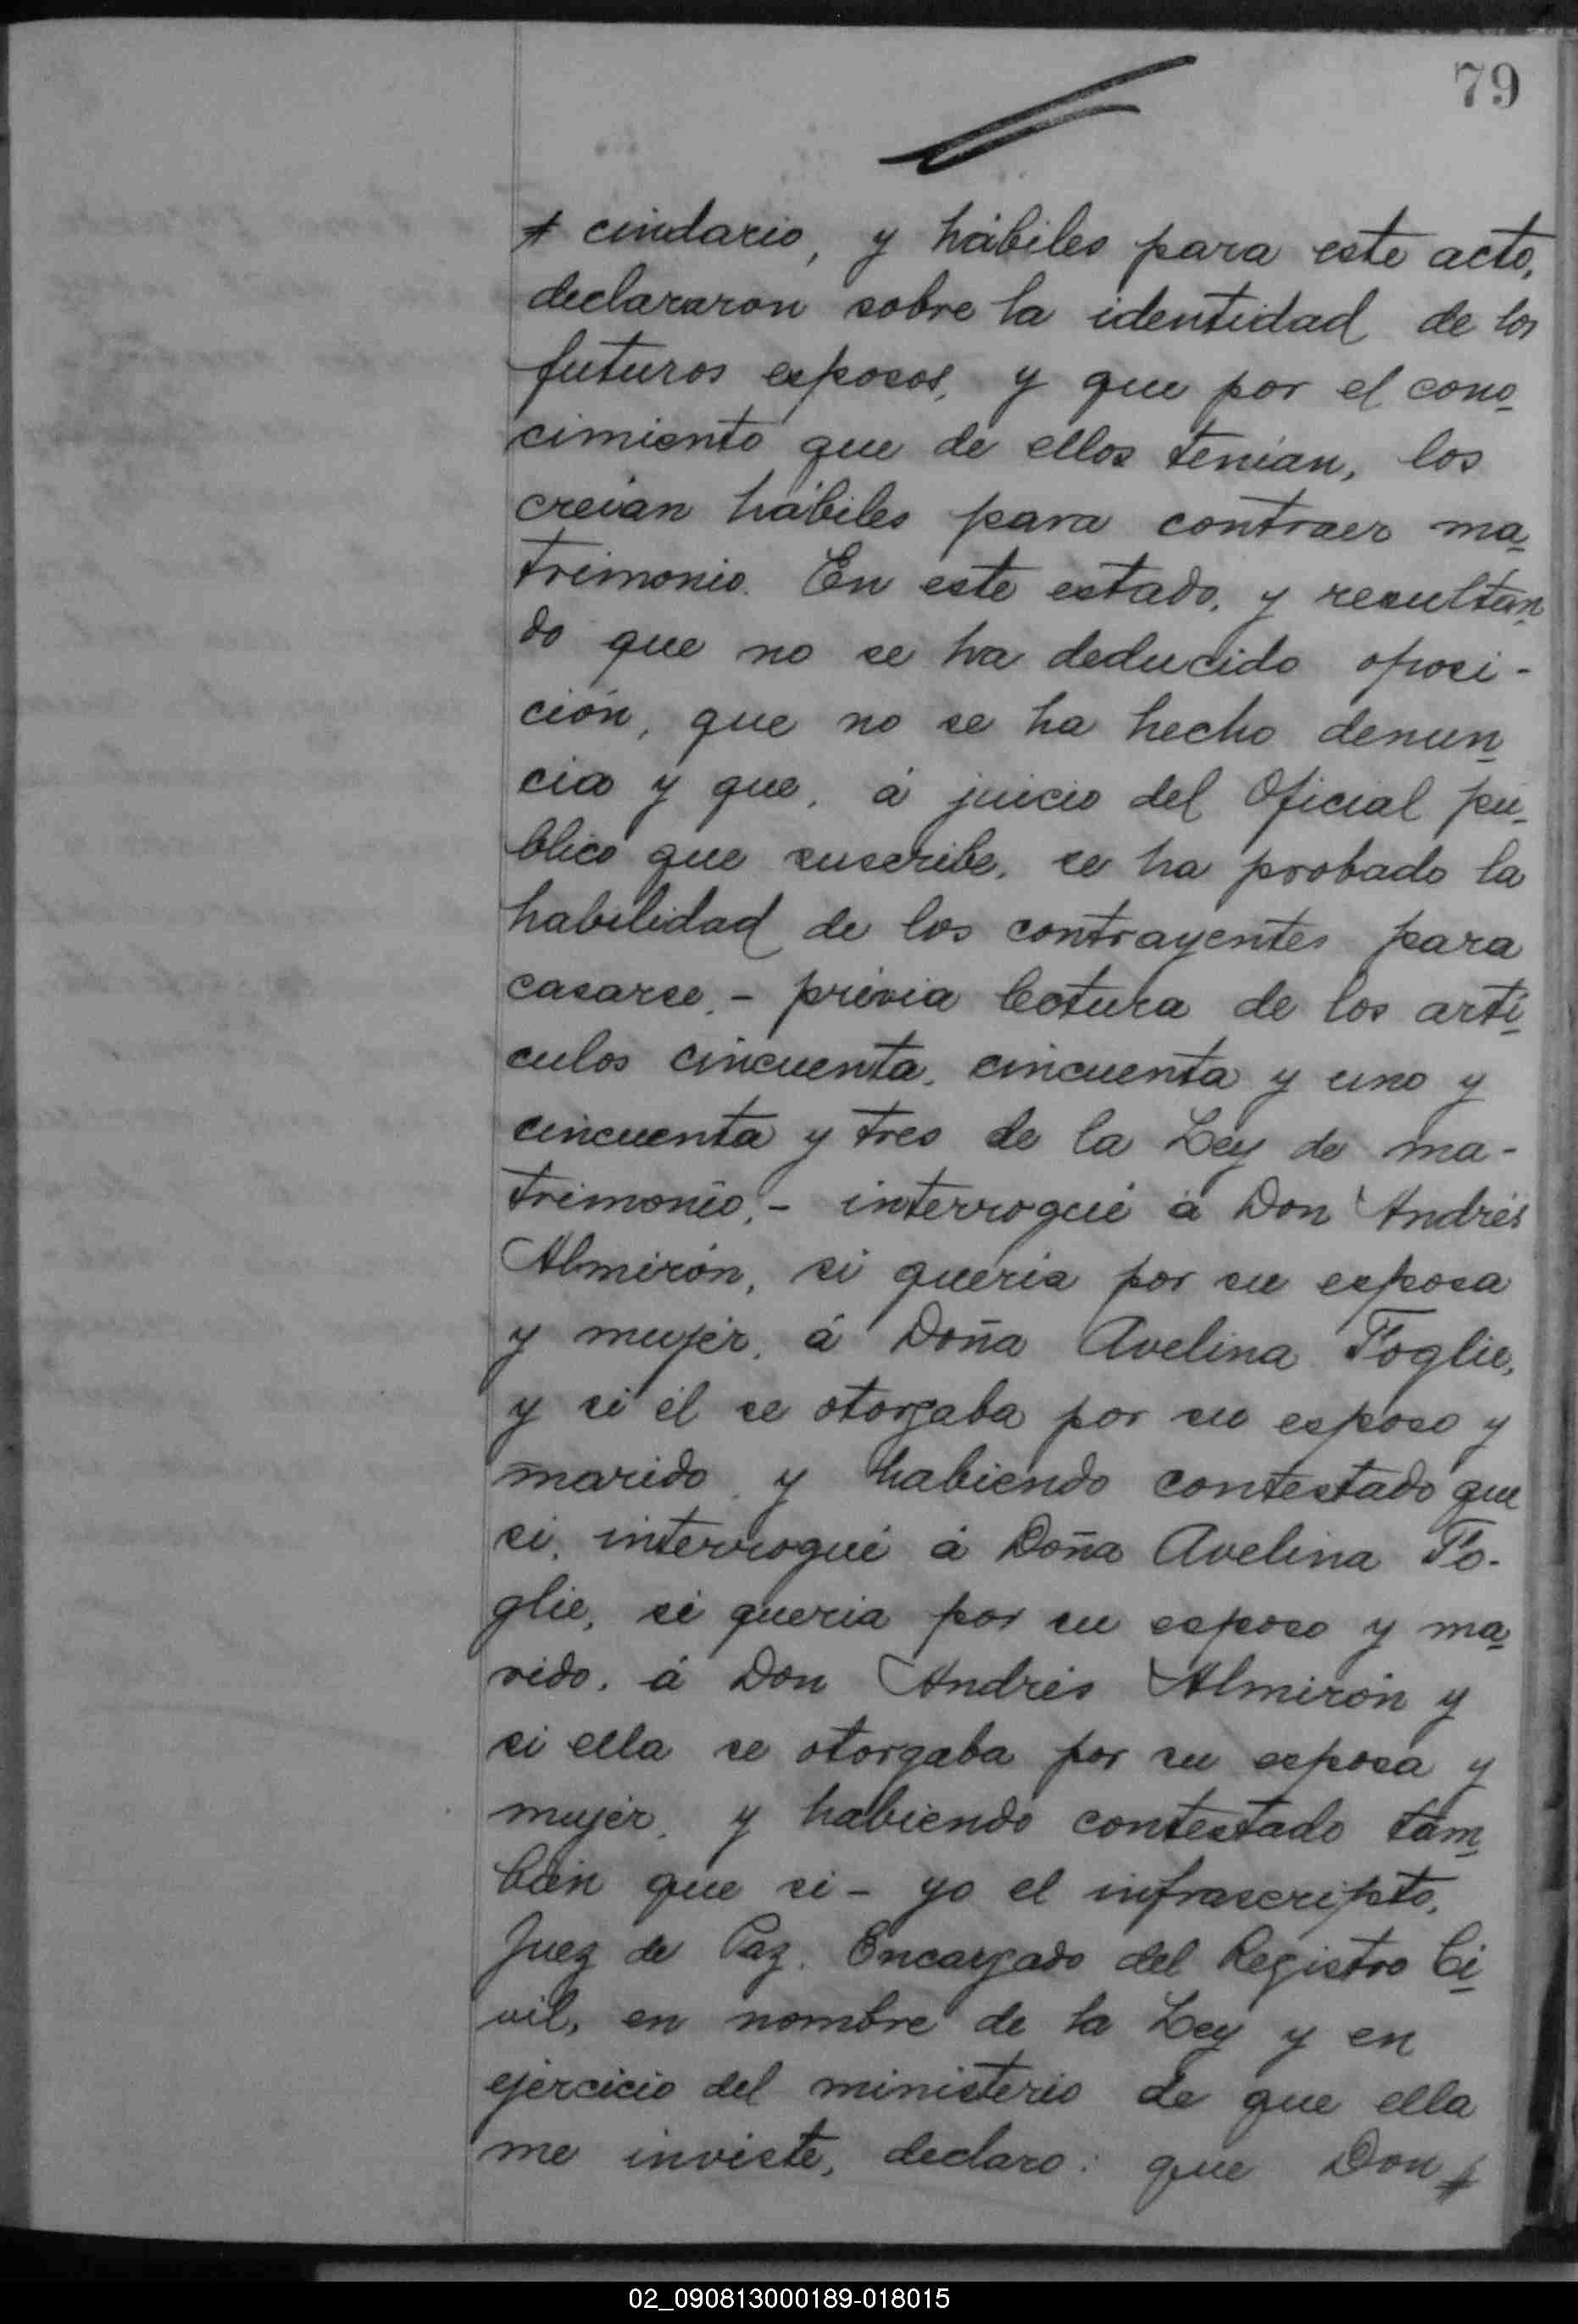 79
cindario, y hábiles para este acto,
declararon sobre la identidad de los
futuros esposos, y que por el cono-
cimiento que de ellos tenian, los
creian hábiles para contraer ma-
trimonio. En este estado, y resultan-
do que no se ha deducido oposi-
ción, que no se ha hecho denun-
cia y que, á juicio del Oficial pú-
blico que suscribe, se ha probado la
habilidad de los contrayentes para
casarse, - prévia lectura de los arti-
culos cincuenta, cincuenta y uno y
cincuenta y tres de la Ley de ma-
trimonio, - interrogué á Don Andrés
Almirón, si queria por su esposa
y mujer, á Doña Avelina Foglie,
y si él se otorgaba por su esposo y
marido, y habiendo contestado que
si, interrogué á Doña Avelina Fo-
glie, si queria por su esposo y ma-
rido, á Don Andrés Almirón y
si ella se otorgaba por su esposa y
mujer, y habiendo contestado tam-
bien que si - yo el infrascripto,
Juez de Paz, Encargado del Registro Ci-
vil, en nombre de la Ley y en
ejercicio del ministerio de que ella
me inviste, declaro: que Don
02_090813000189-018015